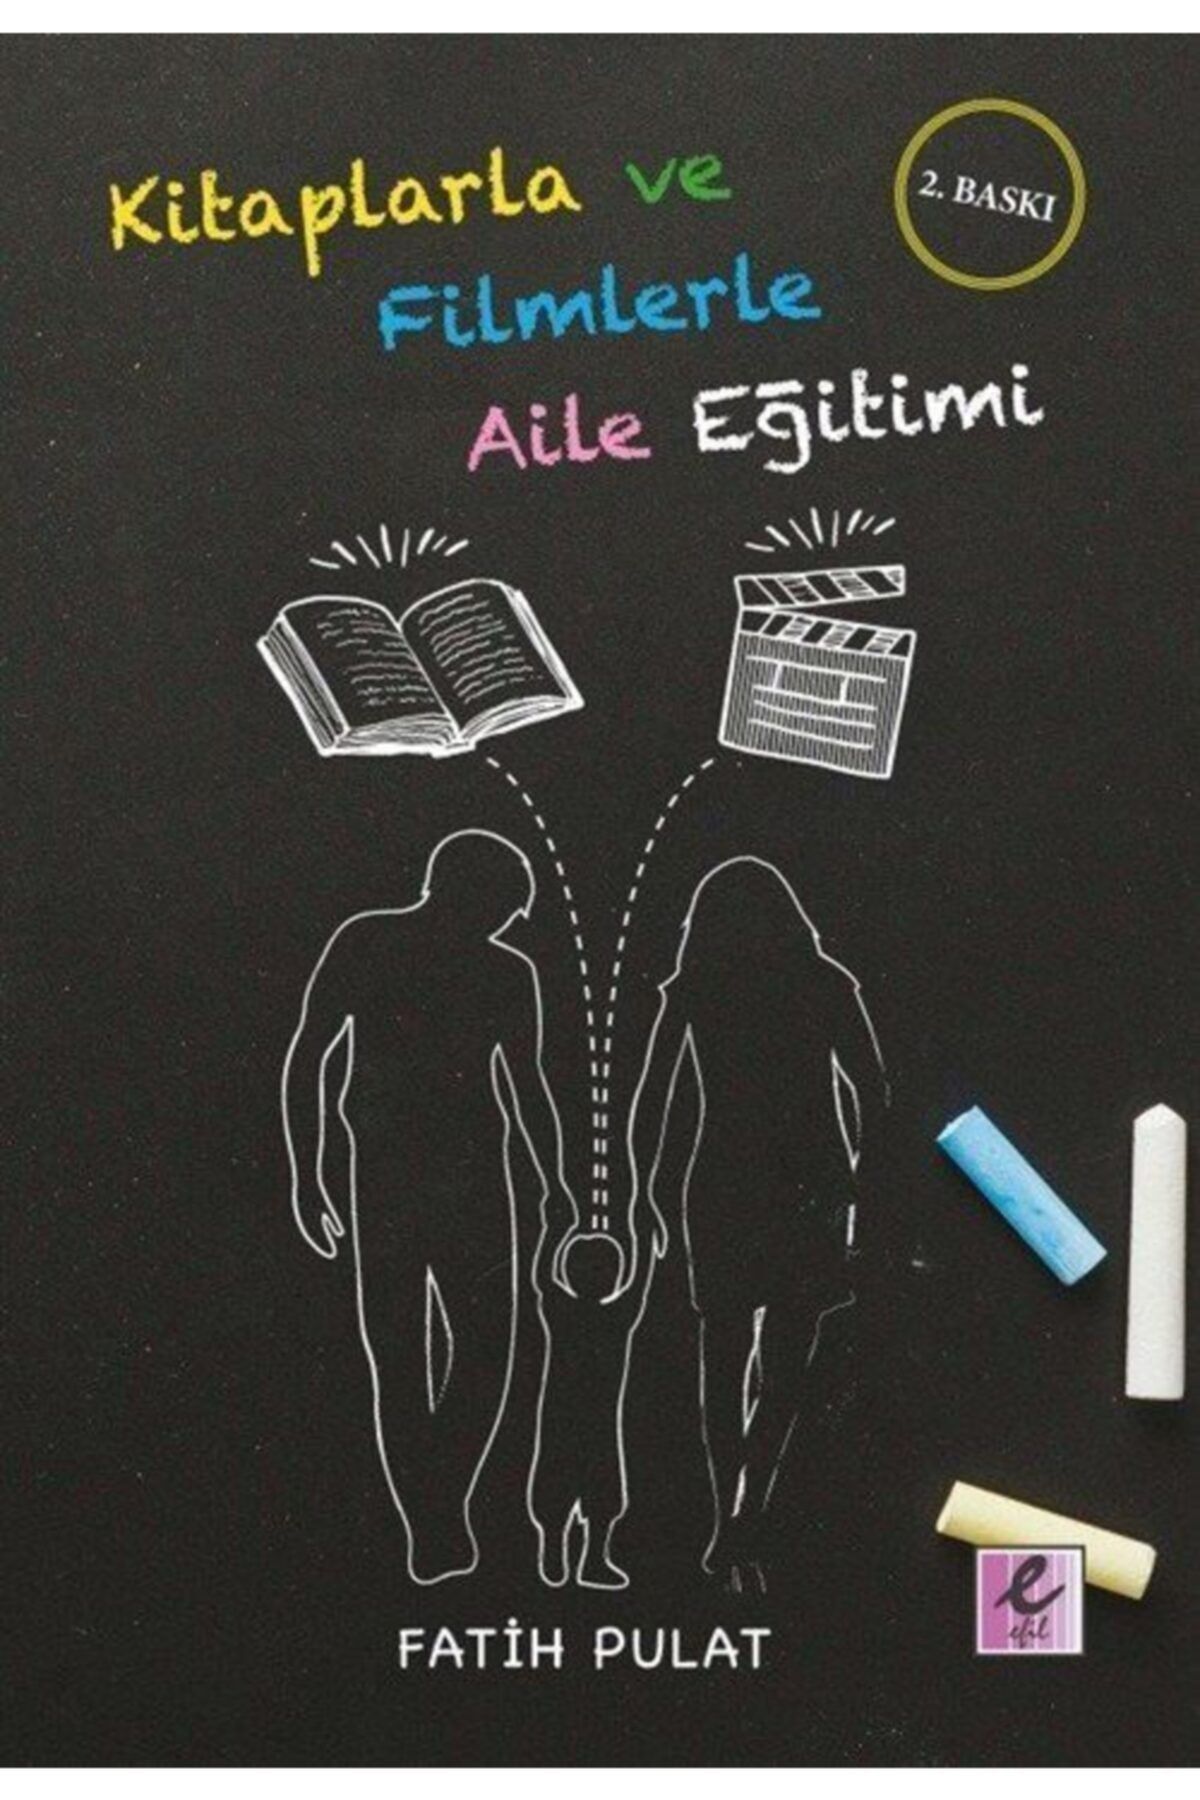 Kitaplarla ve
2. BASKI
Filmlerle
Aile Eğitimi
FATİH PULAT
e
efil